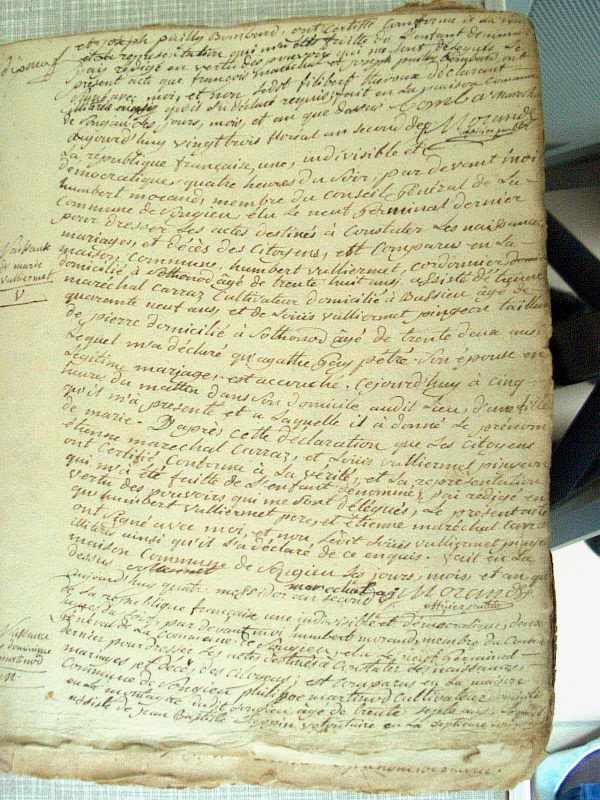 et joseph pailly Bombond, ont Certifié Conforme à la vérité
et la représentation qui m'a été faitte de L'enfant dénommé
j'ai rédigé en vertu des pouvoirs qui me sont délégués Le
présent acte que françois et joseph pailly Bombond, ont
signé avec moi, et non Ledit filibert declarant
illiteré ainsi qu'il l'a déclaré requis; fait en La maison Commune
de Songieu Les jours, mois, et an que dessus Bombond
Morand
officier public
aujourd'huy vingt trois floreal an second de
La république française, une, indivisible et
democratique, quatre heures du Soir, par devant moi
humbert morand, membre du conseil Général de La
Commune de Songieu élu Le neuf Germinal dernier
pour dresser Les actes destinés à Constater Les naissances,
mariages, et décès des Citoyens, est Comparu en La
maison Commune, humbert vulliermet, cordonnier
domicilié à Sothonod âgé de trente huit ans, assisté d'étienne
maréchal Carraz Cultivateur domicilié à Bussieu âgé de
quarente neuf ans, et de Loüis vulliermet pingeon tailleur
de pierre domicilié à Sothonod âgé de trente deux ans;
Lequel m'a déclaré qu'agathe Gécy pétré Son épouse en
Légitime mariage, est accouchée, Cejourd'huy à cinq
heures du mattin dans Son domicile audit Lieu, d'une fille
qu'il m'a présenté et a Laquelle il à donné Le prénom
de marie. D'après cette déclaration que Les Citoyens
étienne marechal Carraz, et Loüis vulliermet pingeon
ont Certifié Conforme à La vérité, et La représentation
qui m'a été faitte de L'enfant denommé, j'ai rédigé en
vertu des pouvoirs qui me sont délégués, Le présent acte
que humbert vulliermet père, et étienne maréchal Carraz
ont Signé avec moi, et non, Ledit Loüis vulliermet pingeon
illiteré ainsi qu'il l'a déclaré de ce enquis. fait en La
maison Commune de Songieu Les jours, mois, et an que
dessus vulliermet marechal
Morand
officier public
Naissance
de marie
vulliermet
V
aujourd'huy quatre messidor an second
de La république française une indivisible et démocratique, douze
heures du Soir, par devant moi humbert morand, membre du Conseil
Général de La Commune de Songieu, élu Le neuf Germinal
dernier pour dresser Les actes destinés à Constater Les naissances,
mariages et décès des Citoyens; est Comparu en La maison
Commune de Songieu philippe martinod Cultivateur
en La montagne dudit Songieu âgé de trente sept ans
assisté de Jean Baptiste volontaire en La septième
Naissance
de dominique
martinod